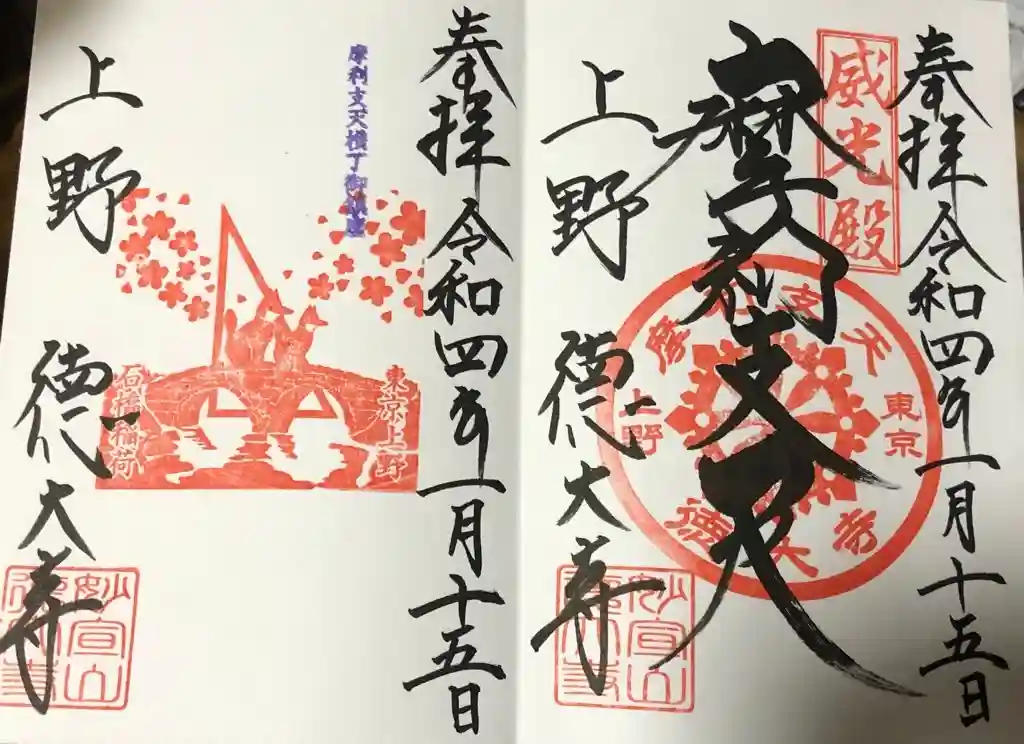 奉拝 令和四年一月十五日
威光殿
摩利支天
摩利支天
東京
上野
徳大寺
上野 徳大寺
妙宣山
徳大寺
奉拝 令和四年一月十五日
摩利支天横丁御鎮座
東京上野
石橋稲荷
上野 徳大寺
妙宣山
徳大寺